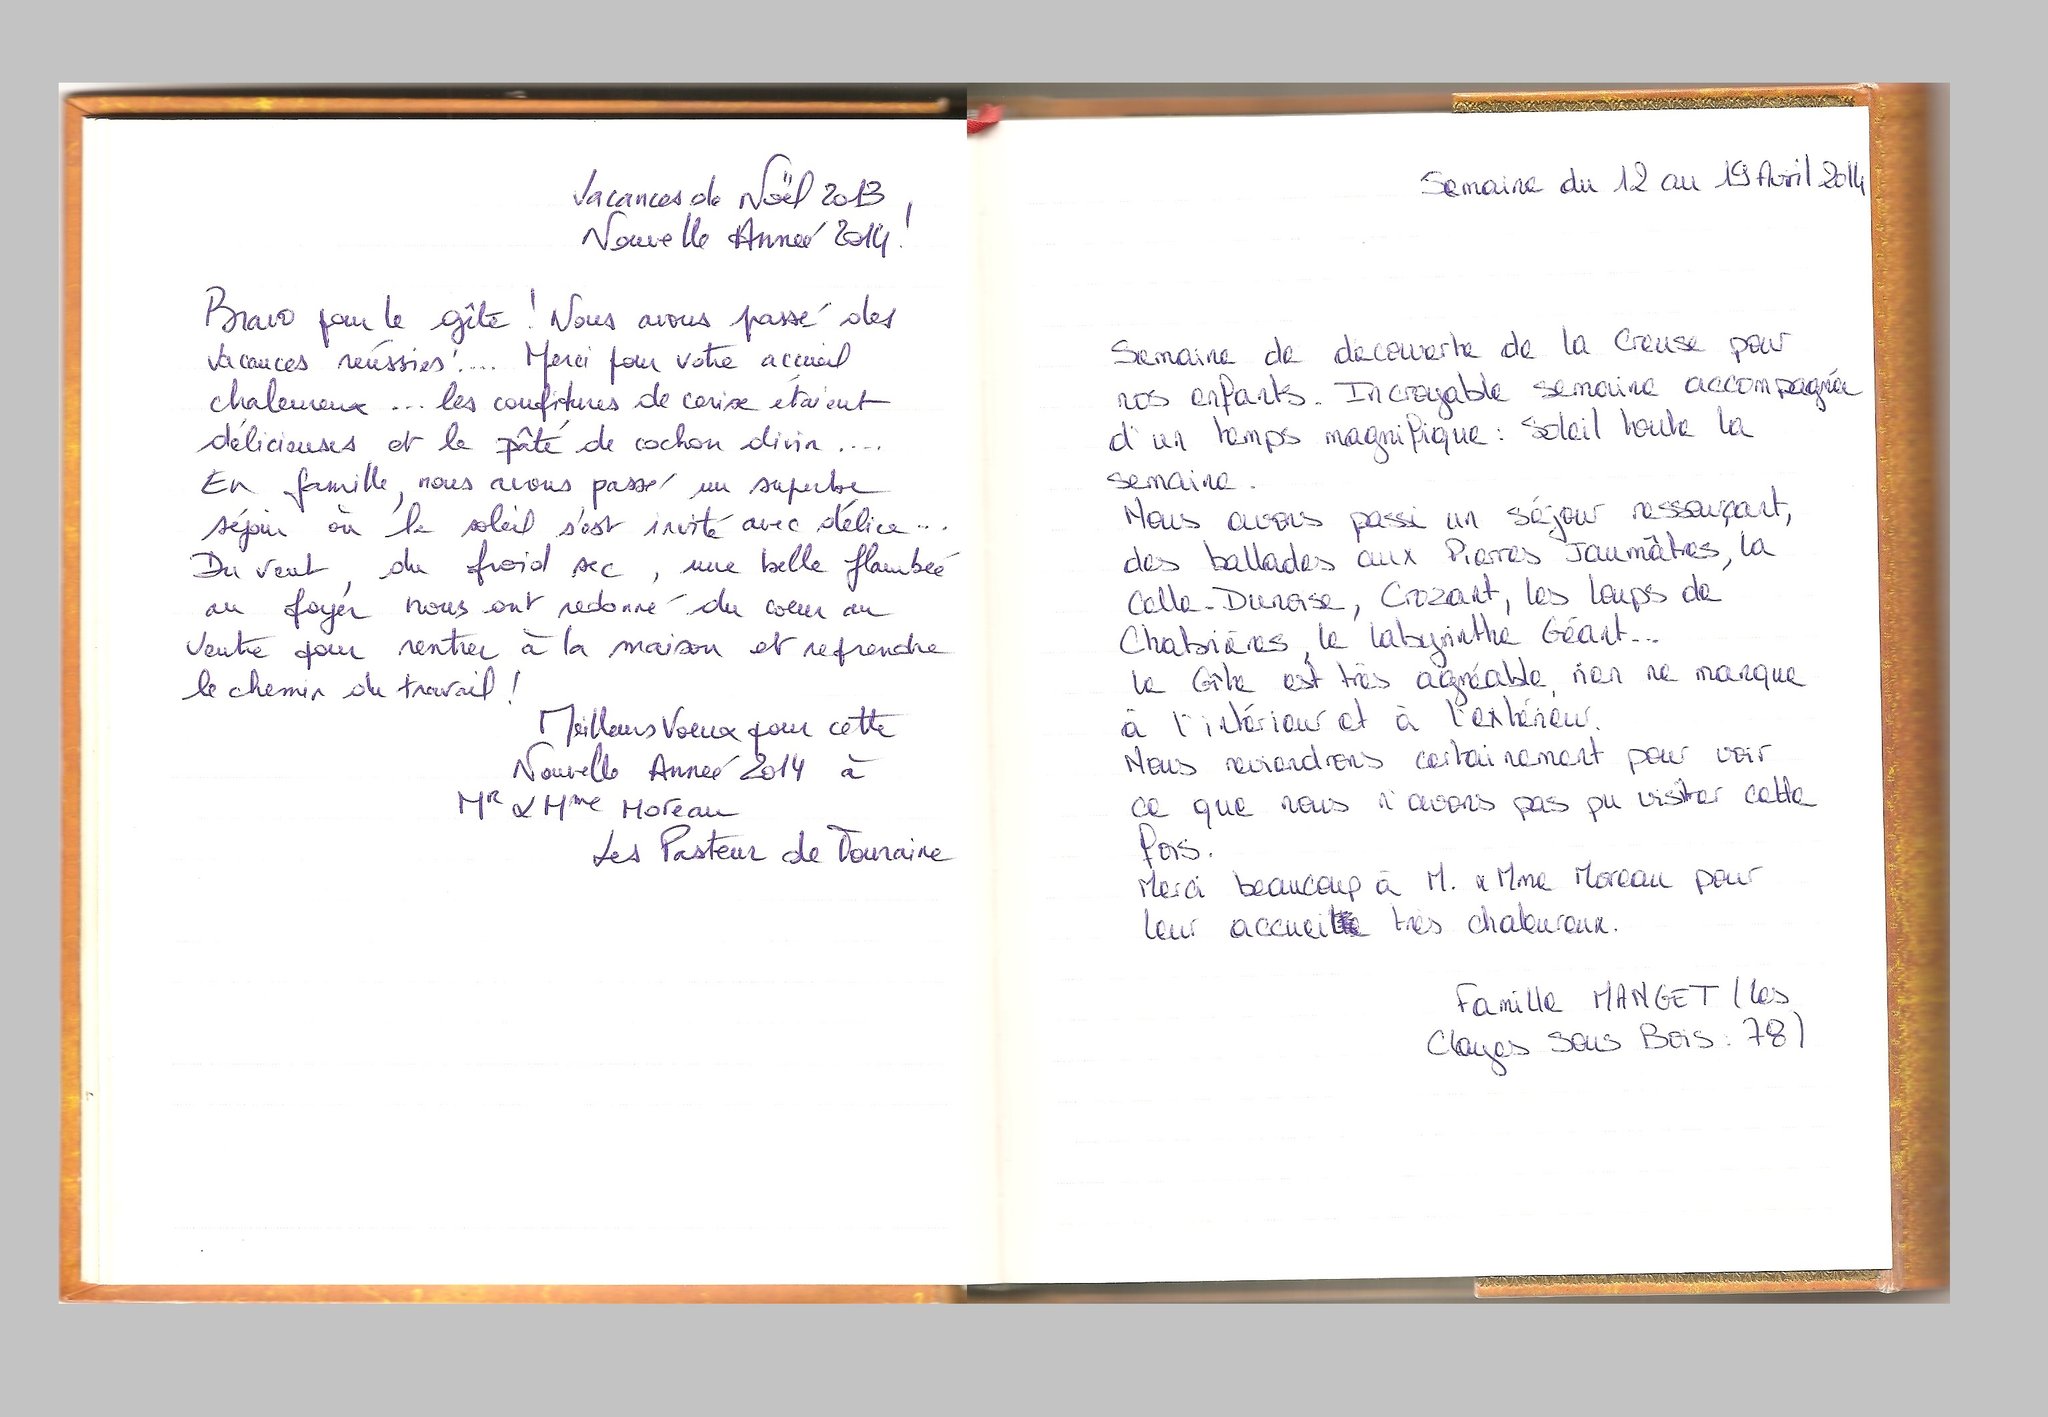 Vacances de Noël 2013
Nouvelle Anneé 2014!
Bravo pour le gîte ! Nous avons passé des
vacances réussies!... Merci pour votre accueil
chaleureux ... les confitures de cerise étaient
délicieuses et le pâté de cochon divin ....
En famille, nous avons passé un superbe
séjour où le soleil s'est invité avec délice...
Du vent, du froid sec, une belle flambeé
au foyer nous ont redonné du coeur au
ventre pour rentrer à la maison et reprendre
le chemin du travail !
Meilleurs Voeux pour cette
Nouvelle Anneé 2014 à
Mr & Mme Moreau
Les Pasteur de Touraine
Semaine du 12 au 19 Avril 2014
Semaine de découverte de la Creuse pour
nos enfants. Incroyable semaine accompagnée
d'un temps magnifique : Soleil toute la
semaine.
Nous avons passé un séjour ressourçant,
des ballades aux Pierres Jaumâtres, la
Celle-Dunoise, Crozant, les loups de
Chabrières, le labyrinthe Géant...
le Gîte est très agréable, rien ne manque
à l'intérieur et à l'extérieur.
Nous reviendrons certainement pour voir
ce que nous n'avons pas pu visiter cette
fois.
Merci beaucoup à M. & Mme Moreau pour
leur accueil très chaleureux.
Famille MANGET (les
Clayes sous Bois : 78)